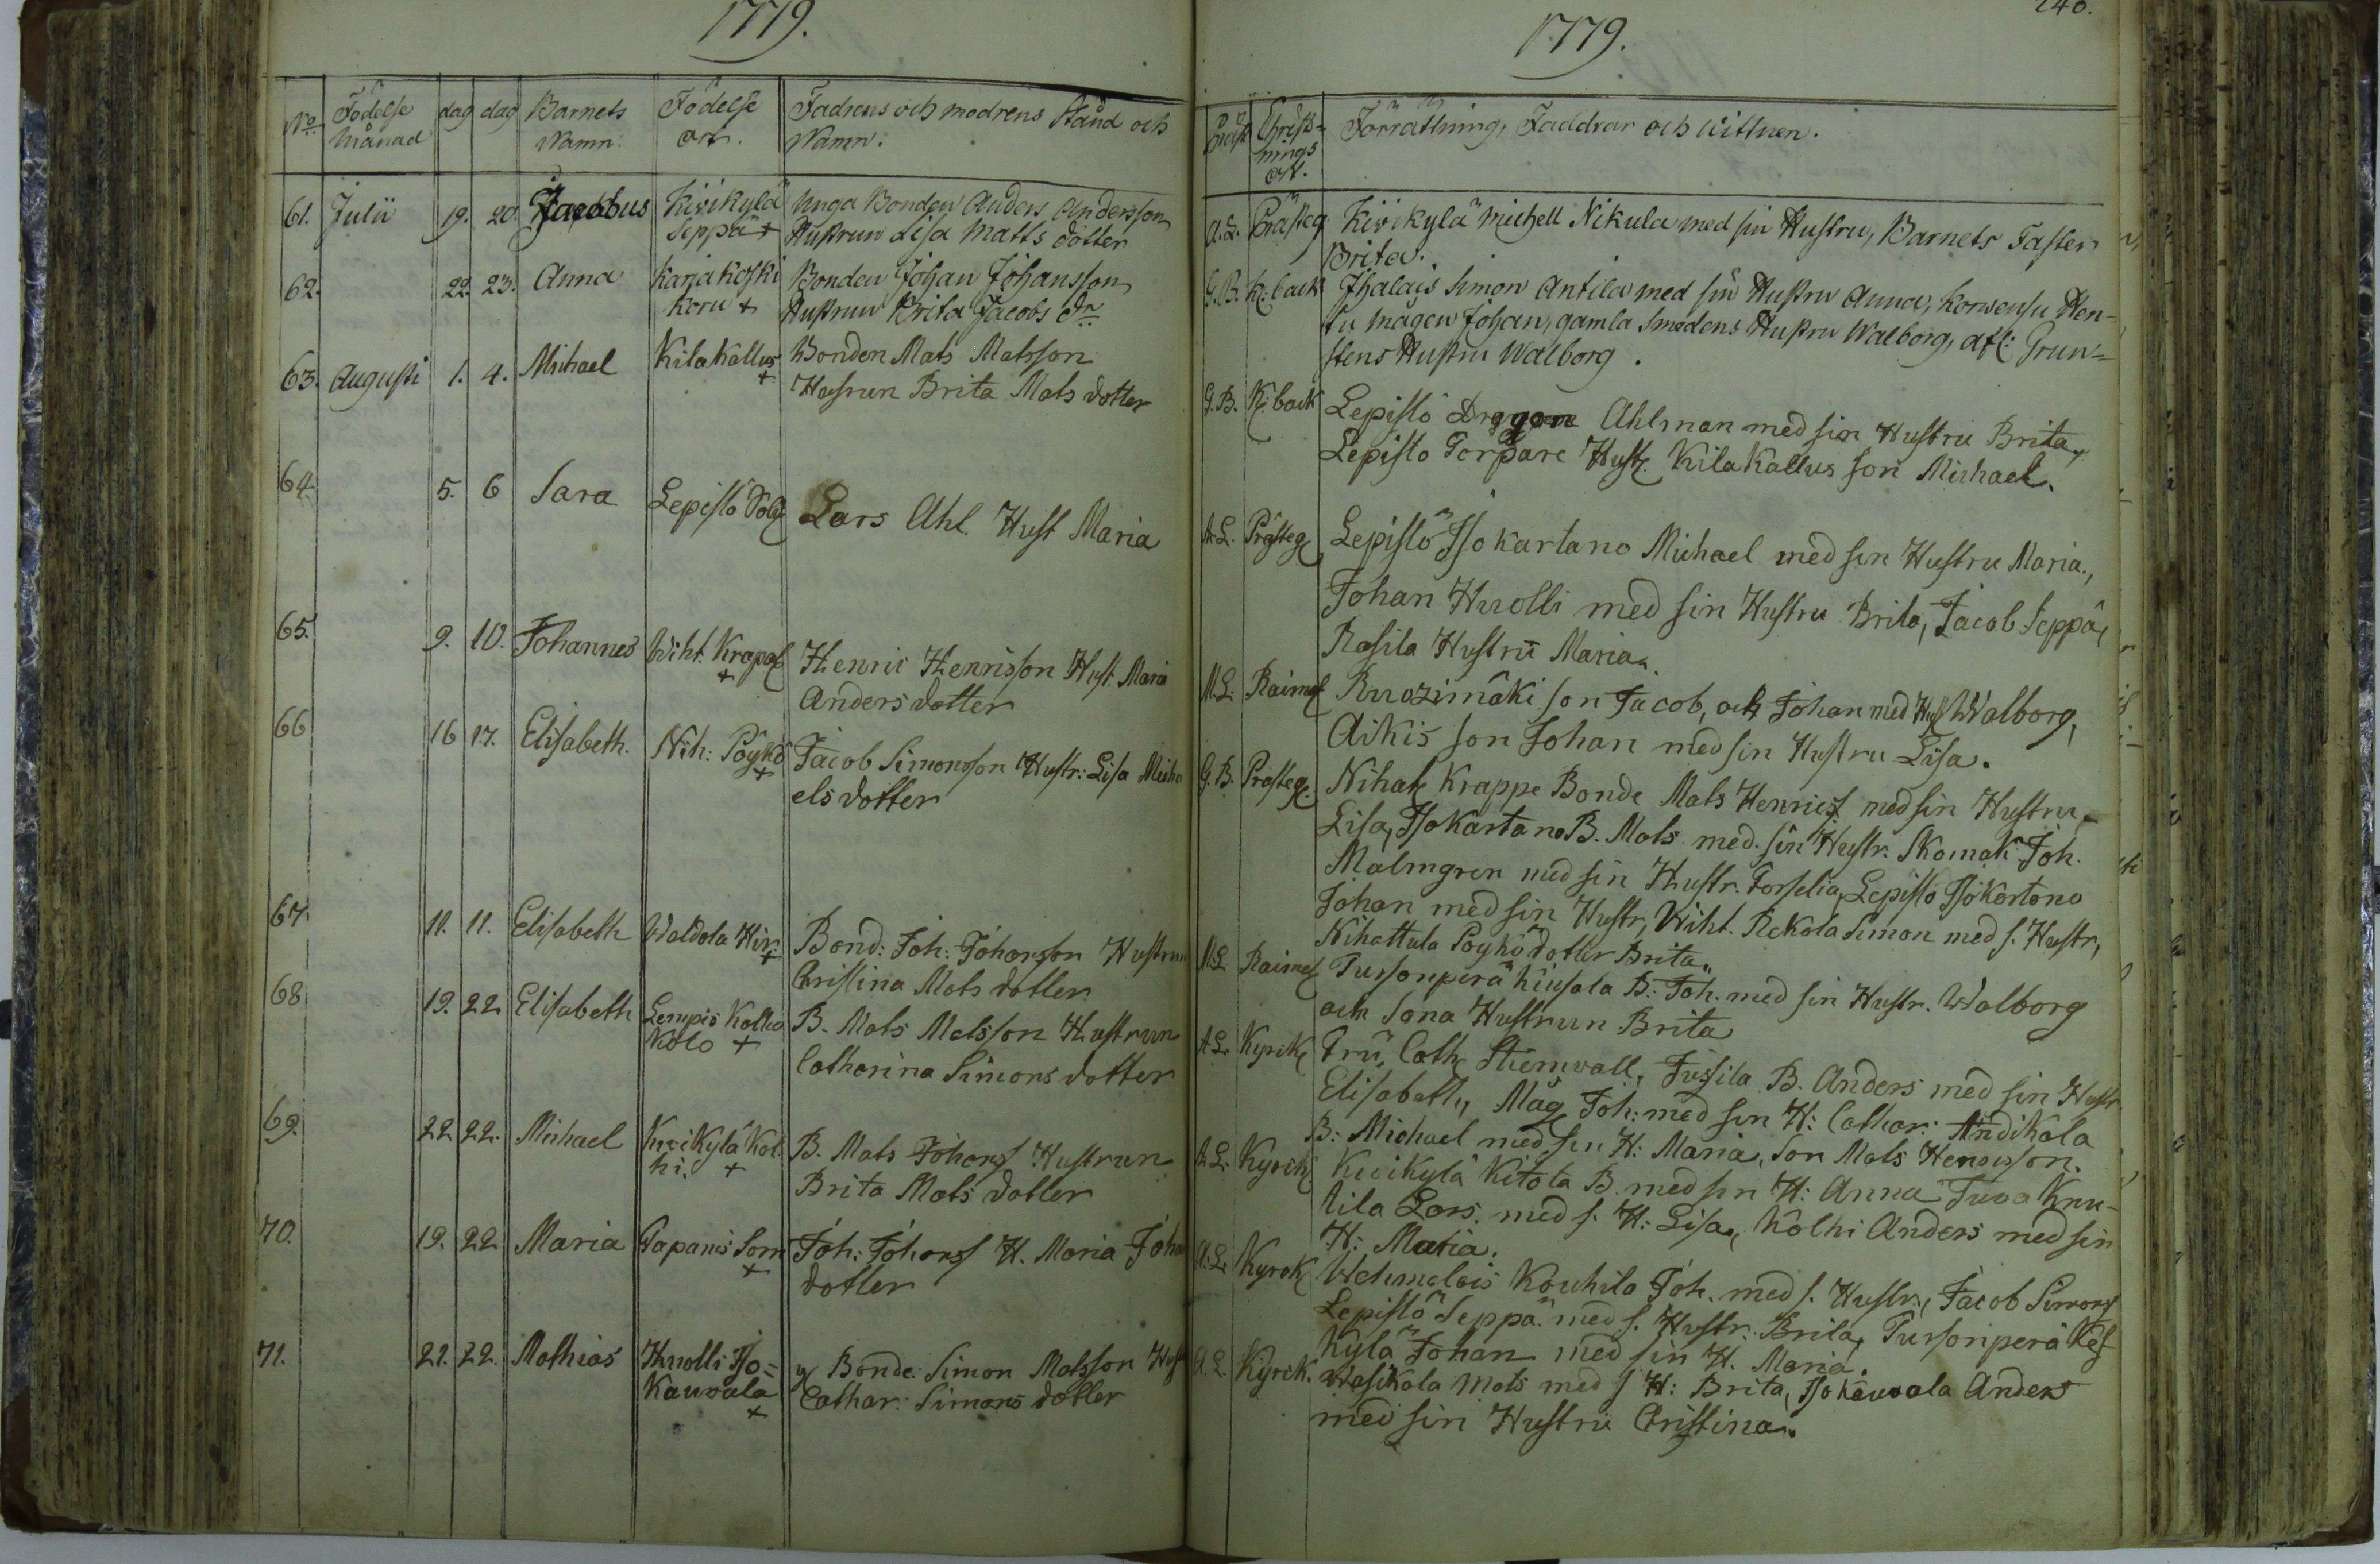 1779.
No Födelse Månad dag dag Barnets Namn. Födelse ort. Fadrens och modrens stånd och Namn.
61. Julii 19. 20. Jacobus Kivikylä Unga Bonden Anders Andersson
Seppä + Hustrun Lisa Matts dotter
62. 22. 23. Anna Karjakoski Bonden Johan Johansson
Koru + Hustrun Brita Jacobs dr
63. Augusti 1. 4. Michael Kilakallus Bonden Mats Matsson
+ Hustrun Brita Mats dotter
64. 5. 6 Sara Lepistö Sold Lars Ahl. Hust Maria
65. 9. 10. Johannes Wiht. Krapof Henric Henrisson Hust. Maria
+ Anders dotter
66 16 17. Elisabeth. Nih: Pöykö Jacob Simonsson Hustr: Lisa Micha
+ els dotter
67. 11. 11. Elisabeth Waldola Hir: Bond: Joh: Johansson Hustrun
+ Christina Mats dotter
68 19. 22 Elisabeth Lempis Kolko B. Mats Matsson Hustrun
Kolo + Catharina Simons dotter
69. 22 22. Michael Kivikylä Kol B. Mats Johans Hustrun
hi. + Brita Mats dotter
70. 19. 22 Maria Tapanis Som Joh: Johans H. Maria Joha
+ dotter
71. 21. 22. Mathias Knolli Iso= y Bonde Simon Matsson Hust
Kauvala + Cathar: Simons dotter
1779.
240.
Präst Christ=nings ort. Förrättning, Faddrar och wittnen.
A. L. Prästeg Kivikylä Michell Nikula med sin Hustru, Barnets Faster
Brita.
G. B. K. back Ihalais Simon Antila med sin Hustru Anna, Korwensu Hen-
su mågen Johan, gamla Smedens Hustru Walborg, afl: Grun=
stens Hustru Walborg.
G. B. K. back Lepistö Dragon Ahlman med sin Hustru Brita,
Lepisto Torpare Hust. Kilakallus son Michael.
A. L. Prästeg Lepistö Isokartano Michael med sin Hustru Maria,
Johan Huolli med sin Hustru Brita, Jacob Seppä,
Rasila Hustru Maria.
M. L. Raimof Ruozimäki son Jacob, och Johan med Hust Walborg,
Aikis son Johan med sin Hustru Lisa.
G. B. Prästeg. Nihat Krappe Bonde Mats Henrics med sin Hustru
Lisa, Isokartano B. Mats med sin Hustr. Skomak. Joh.
Malmgren med sin Hustr. Forselia, Lepisto Isokartano
Johan med sin Hustr, Wiht. Rekola Simon med s. Hustr,
Nihattula Pöykö dotter Brita.
M. L. Raimof Tursonperä Kiusala B. Joh. med sin Hustr. Walborg
och Sona Hustrun Brita
A. L. Kyrck Fru Cath Stiernvall, Jussila B. Anders med sin Hustr
Elisabeth, Måg Joh: med sin H: Cathar: Andikala
B: Michael med sin H: Maria, Son Mats Henrisson.
A. L. Kyrck Kivikylä Kitola B. med sin H: Anna Tuva Knu-
tila Lars med s. H: Lisa, Kolhi Anders med sin
H: Maria.
A. L. Kyrck Wehmalais Kouhila Joh. med s. Hustr., Jacob Simons
Lepistö Seppä med s. Hustr. Brita, Tursonperä Kes
kylä Johan med sin H. Maria.
A. L. Kyrck. Wasikala Mats med s H: Brita, Isokauvala Anders
med sin Hustru Christina.